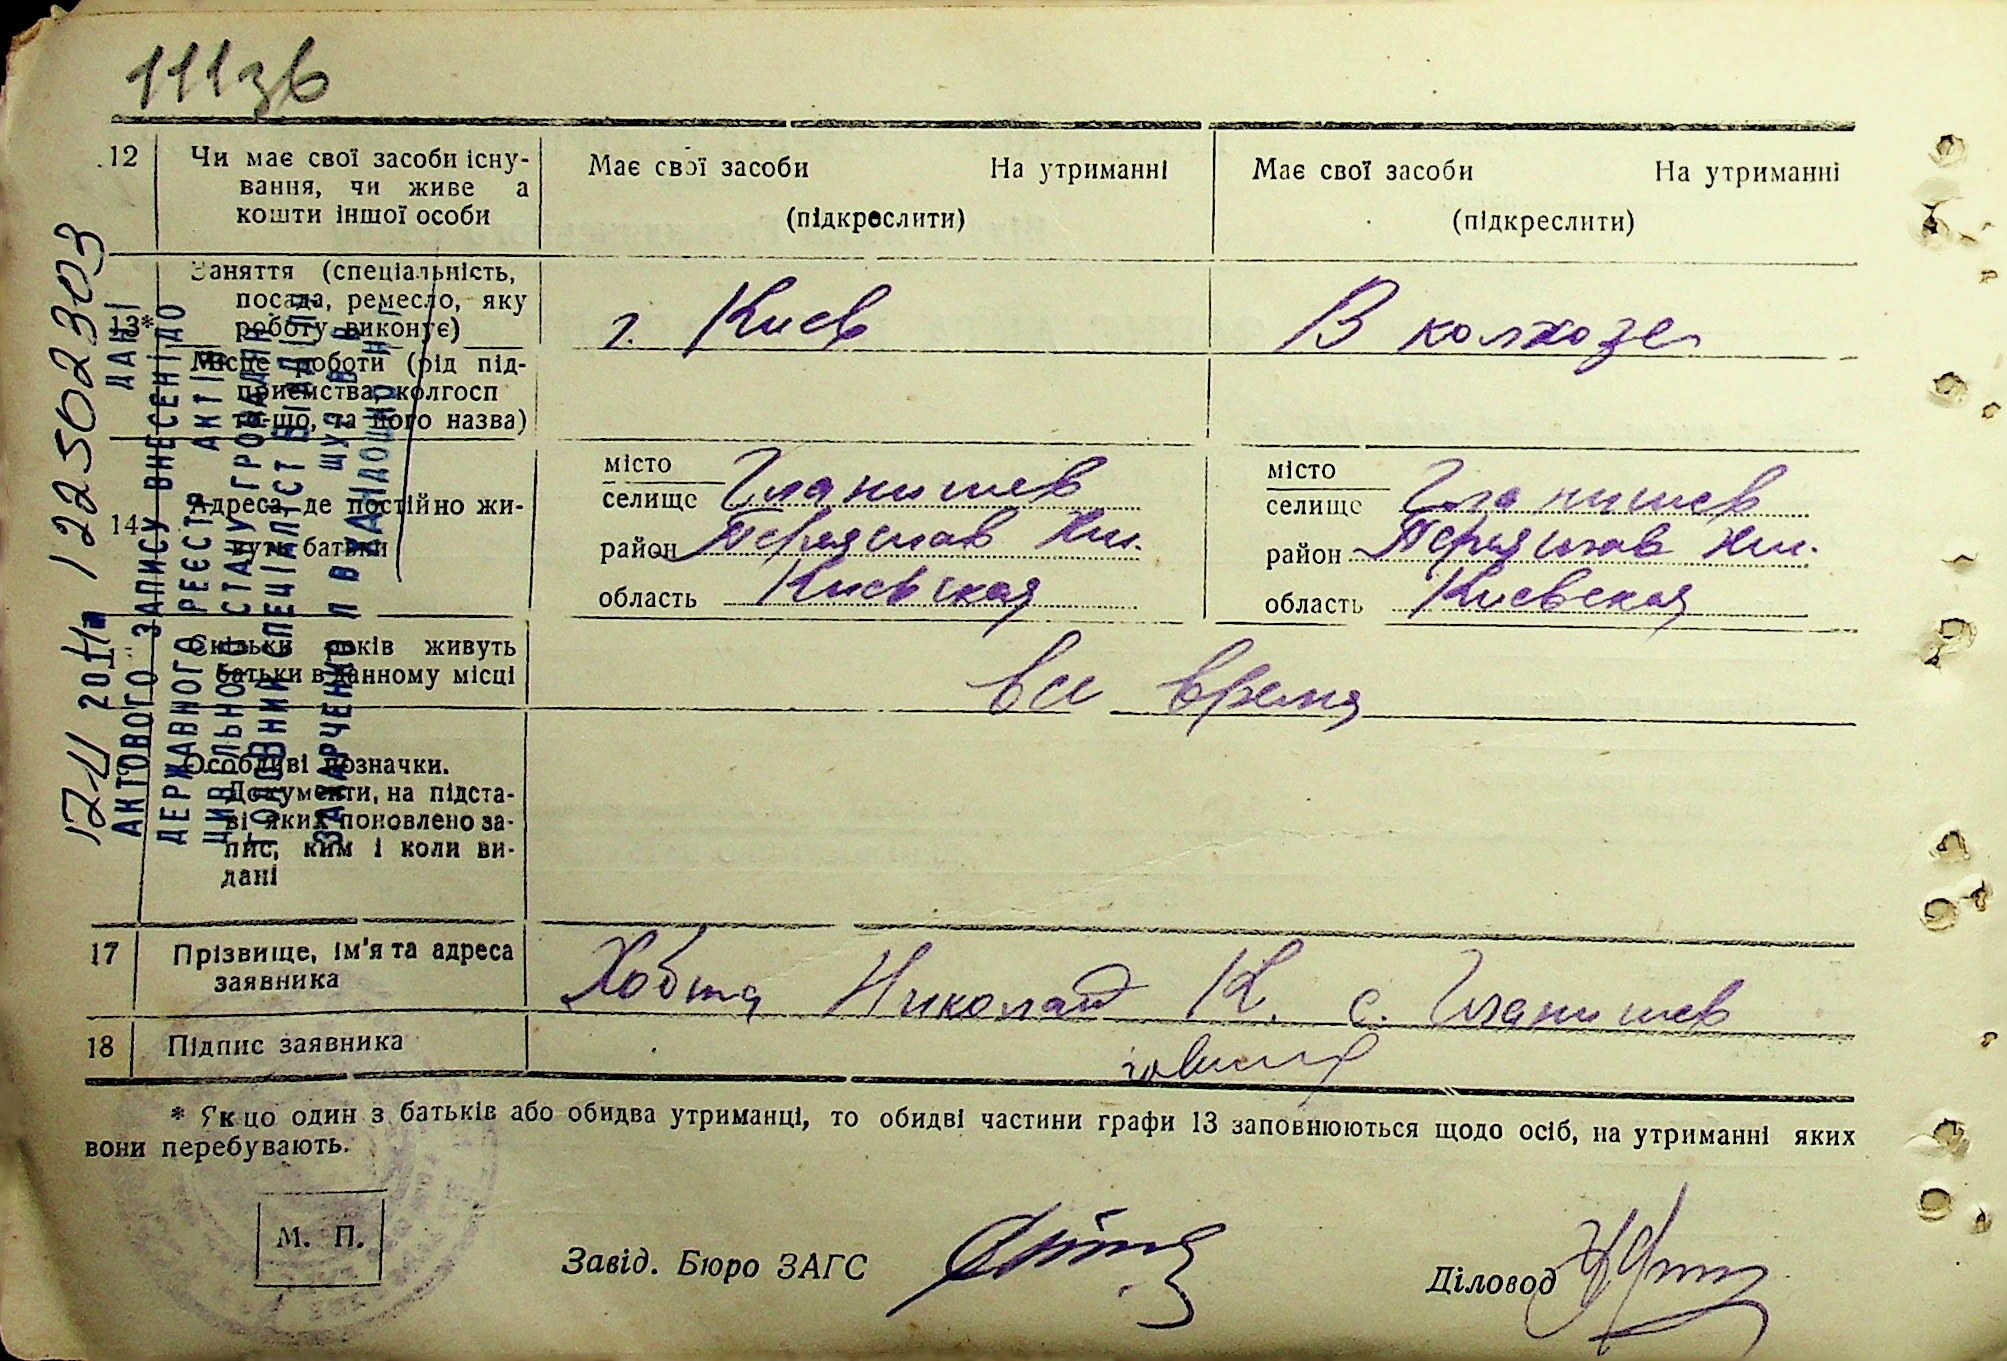 111зв
12 Чи має свої засоби існу-
вання, чи живе а
кошти іншої особи
Має свої засоби На утриманні
(підкреслити)
Має свої засоби На утриманні
(підкреслити)
13* Заняття (спеціальність,
посада, ремесло, яку
роботу виконує)
г. Киев
В колхозе
Місце роботи (рід під-
приємства, колгосп
та-що, та його назва)
14 Адреса, де постійно жи-
вуть батьки
місто
селище Гланишев
район Переяслав Хм.
область Киевская
місто
селище Гланишев
район Переяслав Хм.
область Киевская
Скільки років живуть
батьки в данному місці
все время
Особливі позначки.
Документи, на підста-
ві яких поновлено за-
пис, ким і коли ви-
дані
17 Прізвище, ім'я та адреса
заявника
Хобта Николай К. с. Гланишев
18 Підпис заявника
* Якцо один з батьків або обидва утриманці, то обидві частини графи 13 заповнюються щодо осіб, на утриманні яких
вони перебувають.
М. П.
Завід. Бюро ЗАГС
Діловод
122502303
ДАНІ
АКТОВОГО ЗАПИСУ ВНЕСЕНІ ДО
ДЕРЖАВНОГО РЕЄСТ АКТІ
ЦИВІЛЬНОГО СТАНУ ГРОМАДЯН
ГОЛОВНИЙ СПЕЦІАЛІСТ ВІДДІЛУ
ЗАХАРЧЕНКО Л В